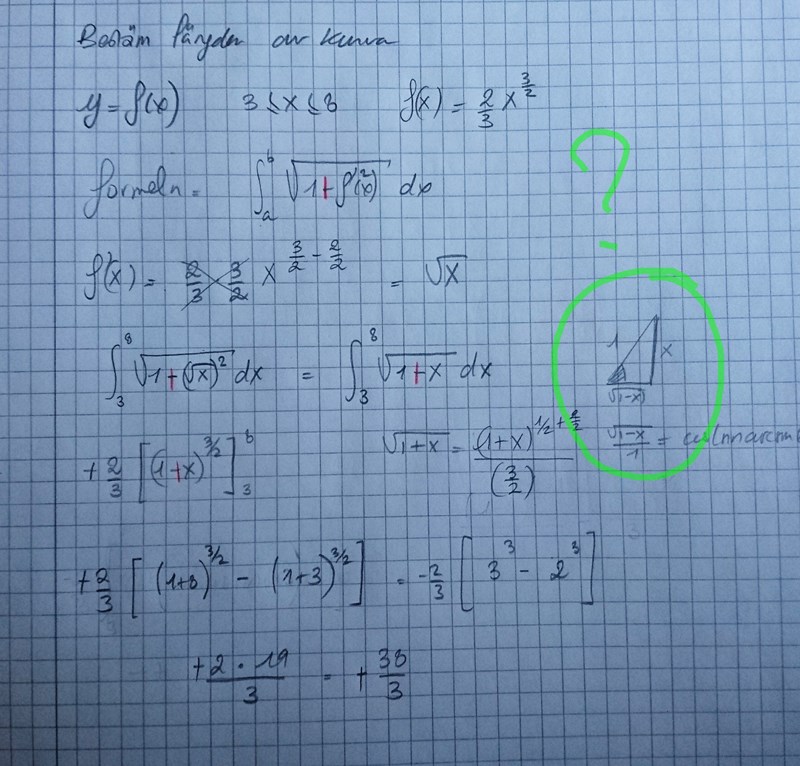 Bestäm längden av kurva
y = f(x) 3 ≤ x ≤ 8 f(x) = 2/3 x^(3/2)
formeln = ∫_a^b √(1 + f'(x)^2) dx
?
f'(x) = 2/3 · 3/2 x^(3/2 - 2/2) = √x
1
x
√(1-x)
∫_3^8 √(1 + (√x)^2) dx = ∫_3^8 √(1+x) dx
√(1+x) = (1+x)^(1/2 + 2/2) / (3/2)
√(1-x) / 1 =
+ 2/3 [(1+x)^(3/2)]_3^8
+ 2/3 [(1+8)^(3/2) - (1+3)^(3/2)] = - 2/3 [3^3 - 2^3]
+ 2 · 19 / 3 = + 38/3